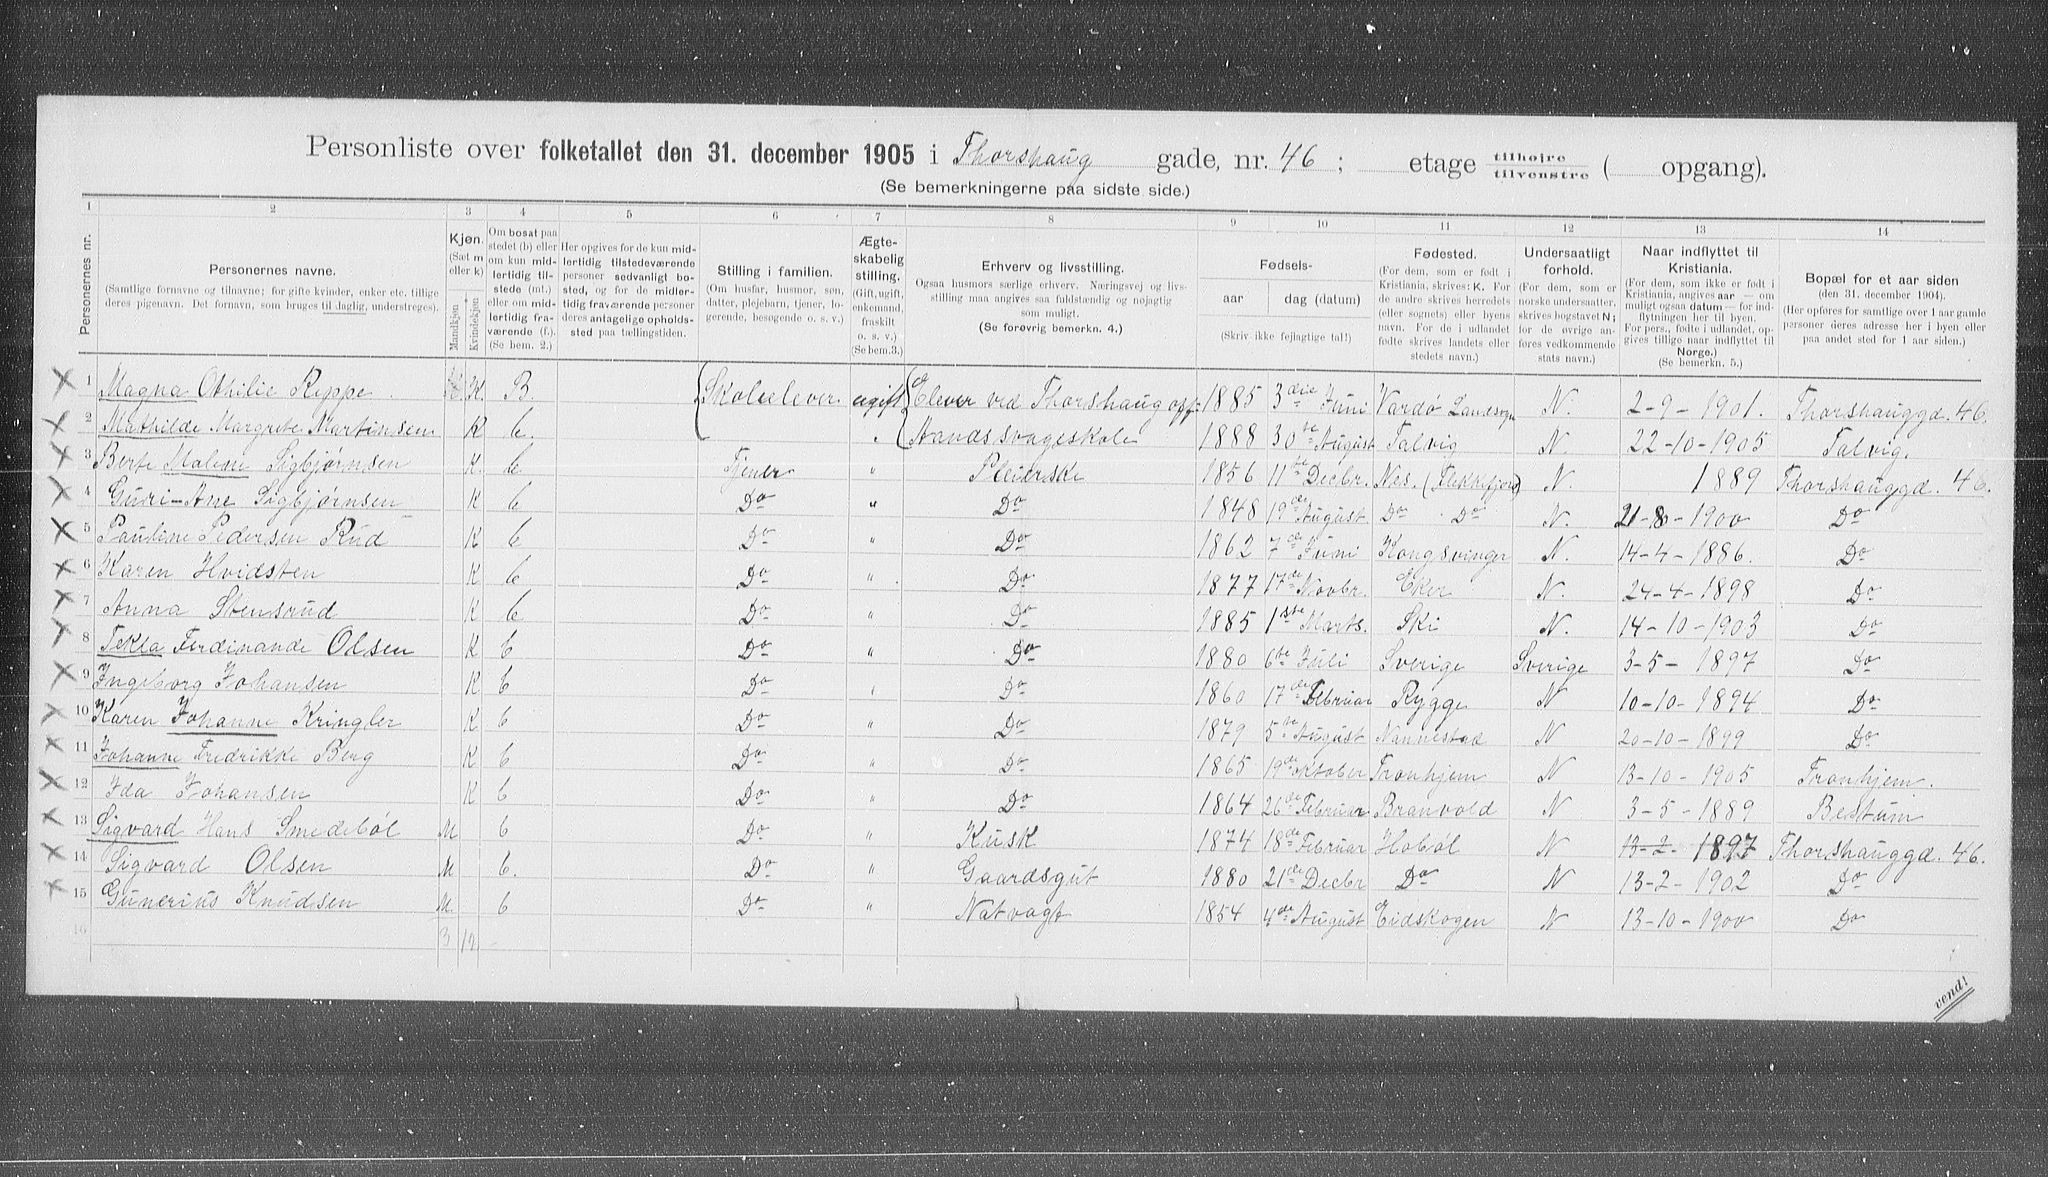 Personliste over folketallet den 31. december 1905 i Thorshaug gade, nr. 46; etage tilhøjre tilvenstre ( opgang).
(Se bemerkningerne paa sidste side.)
1 2 3 4 5 6 7 8 9 10 11 12 13 14
Personernes nr.
Personernes navne.
(Samtlige fornavne og tilnavne; for gifte kvinder, enker etc. tillige deres pigenavn. Det fornavn, som bruges til daglig, understreges).
Kjøn. (Sæt m eller k)
Mandkjøn Kvindekjøn
Om bosat paa stedet (b) eller om kun midlertidig tilstede (mt.) eller om midlertidig fraværende (f.). (Se bem. 2.)
Her opgives for de kun midlertidig tilstedeværende personer sedvanligt bosted, og for de midlertidig fraværende personer deres antagelige opholdssted paa tællingstiden.
Stilling i familien.
(Om husfar, husmor, søn, datter, plejebarn, tjener, logerende, besøgende o. s. v.)
Ægteskabelig stilling.
(Gift, ugift, enkemand, fraskilt o. s. v.)
(Se bem. 3.)
Erhverv og livsstilling.
Ogsaa husmors særlige erhverv. Næringsvej og livsstilling maa angives saa fuldstændig og nøjagtig som muligt.
(Se forøvrig bemerkn. 4.)
Fødsels-
aar dag (datum)
(Skriv ikke fejlagtige tal!)
Fødested.
(For dem, som er født i Kristiania, skrives: K. For de andre skrives herredets (eller sognets) eller byens navn. For de i udlandet fødte skrives landets eller stedets navn.)
Undersaatligt forhold.
(For dem, som er norske undersaatter, skrives bogstavet N; for de øvrige anføres vedkommende stats navn.)
Naar indflyttet til Kristiania.
(For dem, som ikke er født i Kristiania, angives aar — om muligt ogsaa datum — for indflytningen her til byen. For pers., fødte i udlandet, opgives tillige naar indflyttet til Norge.)
(Se bemerkn. 5.)
Bopæl for et aar siden
(den 31. december 1904).
(Her opføres for samtlige over 1 aar gamle personer deres adresse her i byen eller paa andet sted for 1 aar siden.)
1 Magna Othilie Rippe. K B. Skoleelever. ugift Elever ved Thorshaug off. 1885 3die Juni Vardø Landsogn N. 2-9-1901. Thorshauggd. 46.
2 Mathilde Margrete Martinsen K b. " Aandssvageskole 1888 30te August Talvig N. 22-10-1905 Talvig.
3 Berte Malene Sigbjørnsen K. b Tjener " Pleierske 1856 11te Decbr. Nes. (Flekkefjord) N. 1889 Thorshauggd. 46.
4 Guri-Ane Sigbjørnsen K b Do " Do 1848 19de August. Do Do N. 21-8-1900 Do
5 Pauline Pedersen Rud K b Do " Do 1862 7de Juni Kongsvinger N. 14-4-1886. Do
6 Karen Hvidsten K b Do " Do 1877 17de Novbr. Eker N. 24-4-1898 Do
7 Anna Stensrud K b Do " Do 1885 1ste Marts. Ski N. 14-10-1903 Do
8 Tekla Ferdinande Olsen K b Do " Do 1880 6te Juli Sverige Sverige 3-5-1897 Do
9 Ingeborg Johansen K b Do " Do 1860 17de Februar Rygge N 10-10-1894 Do
10 Karen Johanne Kringler K b Do " Do 1879 5te August Nannestad N 20-10-1899 Do
11 Johanne Fredrikke Berg K b Do " Do 1865 19de oktober Tronhjem N 13-10-1905 Tronhjem.
12 Ida Johansen K b Do " Do 1864 26de Februar Branvold N 3-5-1889 Bestum
13 Sigvard Hans Smedebøl M b Do " Kusk 1874 18de Februar Hobøl N 13-2-1897 Thorshauggd. 46.
14 Sigvard Olsen M b. Do " Gaardsgut 1880 21de Decbr Do N 13-2-1902 Do
15 Gunerius Knudsen M b Do " Natvagt 1854 4de August Eidskogen N 13-10-1900 Do
16 3 12
vend!